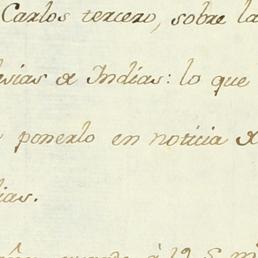 Carlos tercero, sobre la
esias de Indias: lo que
ponerlo en noticia de
ias.